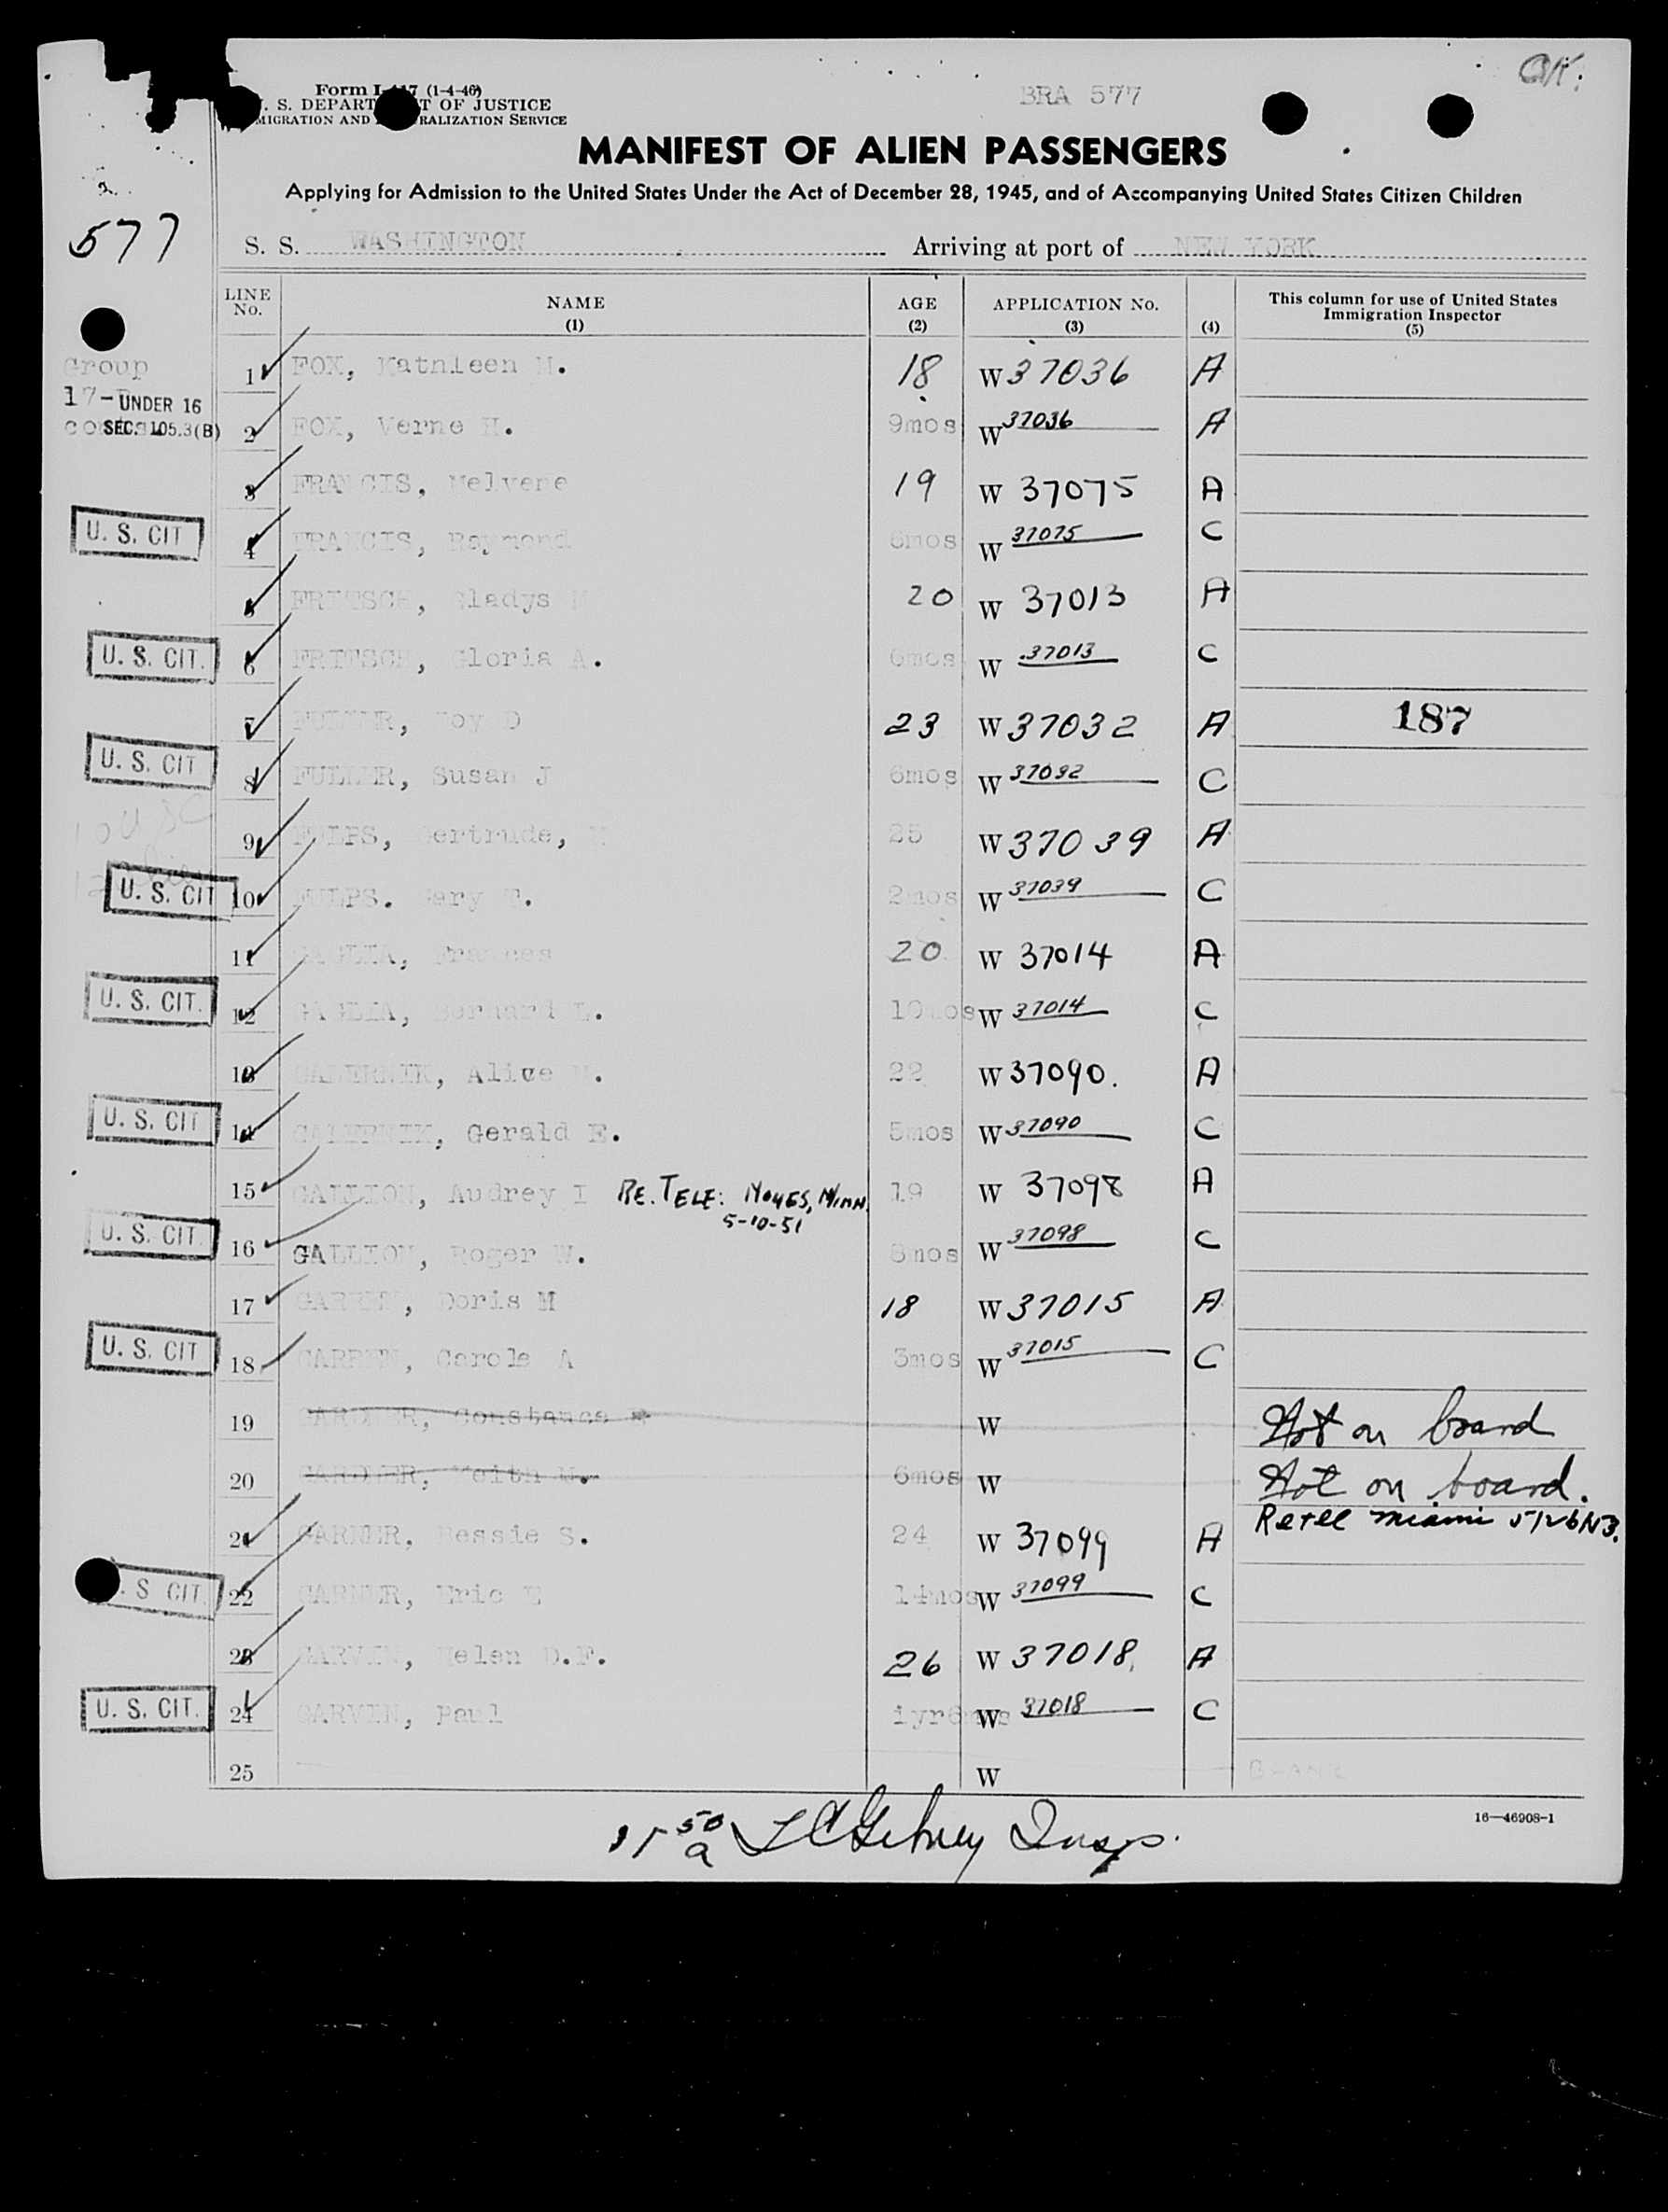 OK.
BRA 577
Form I-417 (1-4-46)
U. S. DEPARTMENT OF JUSTICE
IMMIGRATION AND NATURALIZATION SERVICE
MANIFEST OF ALIEN PASSENGERS
Applying for Admission to the United States Under the Act of December 28, 1945, and of Accompanying United States Citizen Children
577
S. S. WASHINGTON Arriving at port of NEW YORK
LINE No. NAME (1) AGE (2) APPLICATION No. (3) (4) This column for use of United States Immigration Inspector (5)
Group
1 FOX, Kathleen M. 18 W 37036 A
17-
UNDER 16
SEC. 105.3(B)
2 FOX, Verne H. 9mos W 37036 A
3 FRANCIS, Melvene 19 W 37075 A
U. S. CIT 4 FRANCIS, Raymond 6mos W 37075 C
5 FRITSCH, Gladys M 20 W 37013 A
U. S. CIT. 6 FRITSCH, Gloria A. 6mos W 37013 C
7 FULLER, Joy D 23 W 37032 A 187
U. S. CIT 8 FULLER, Susan J 6mos W 37032 C
10 USC
9 FULPS, Gertrude, 25 W 37039 A
U. S. CIT 10 FULPS. Gary T. 2mos W 37039 C
11 GAGLIA, Frances 20 W 37014 A
U. S. CIT. 12 GAGLIA, Bernard L. 10mos W 37014 C
13 GALERNIK, Alice M. 22 W 37090. A
U. S. CIT 14 GALERNIK, Gerald E. 5mos W 37090 C
15 GALLION, Audrey I RE. TELE: NOYES, MINN. 19 W 37098 A
5-10-51
U. S. CIT. 16 GALLION, Roger W. 8mos W 37098 C
17 GARREN, Doris M 18 W 37015 A
U. S. CIT 18 GARREN, Carole A 3mos W 37015 C
19 GARDNER, Constance W Not on board
20 GARDNER, Keith M. 6mos W Not on board.
Retel Miami 5/26
21 GARNER, Bessie S. 24 W 37099 A
U. S CIT. 22 GARNER, Eric E 14mos W 37099 C
23 GARVIN, Helen D.F. 26 W 37018 A
U. S. CIT. 24 GARVIN, Paul 1yr6mos W 37018 C
25 W BLANK
Insp.
16—46908-1